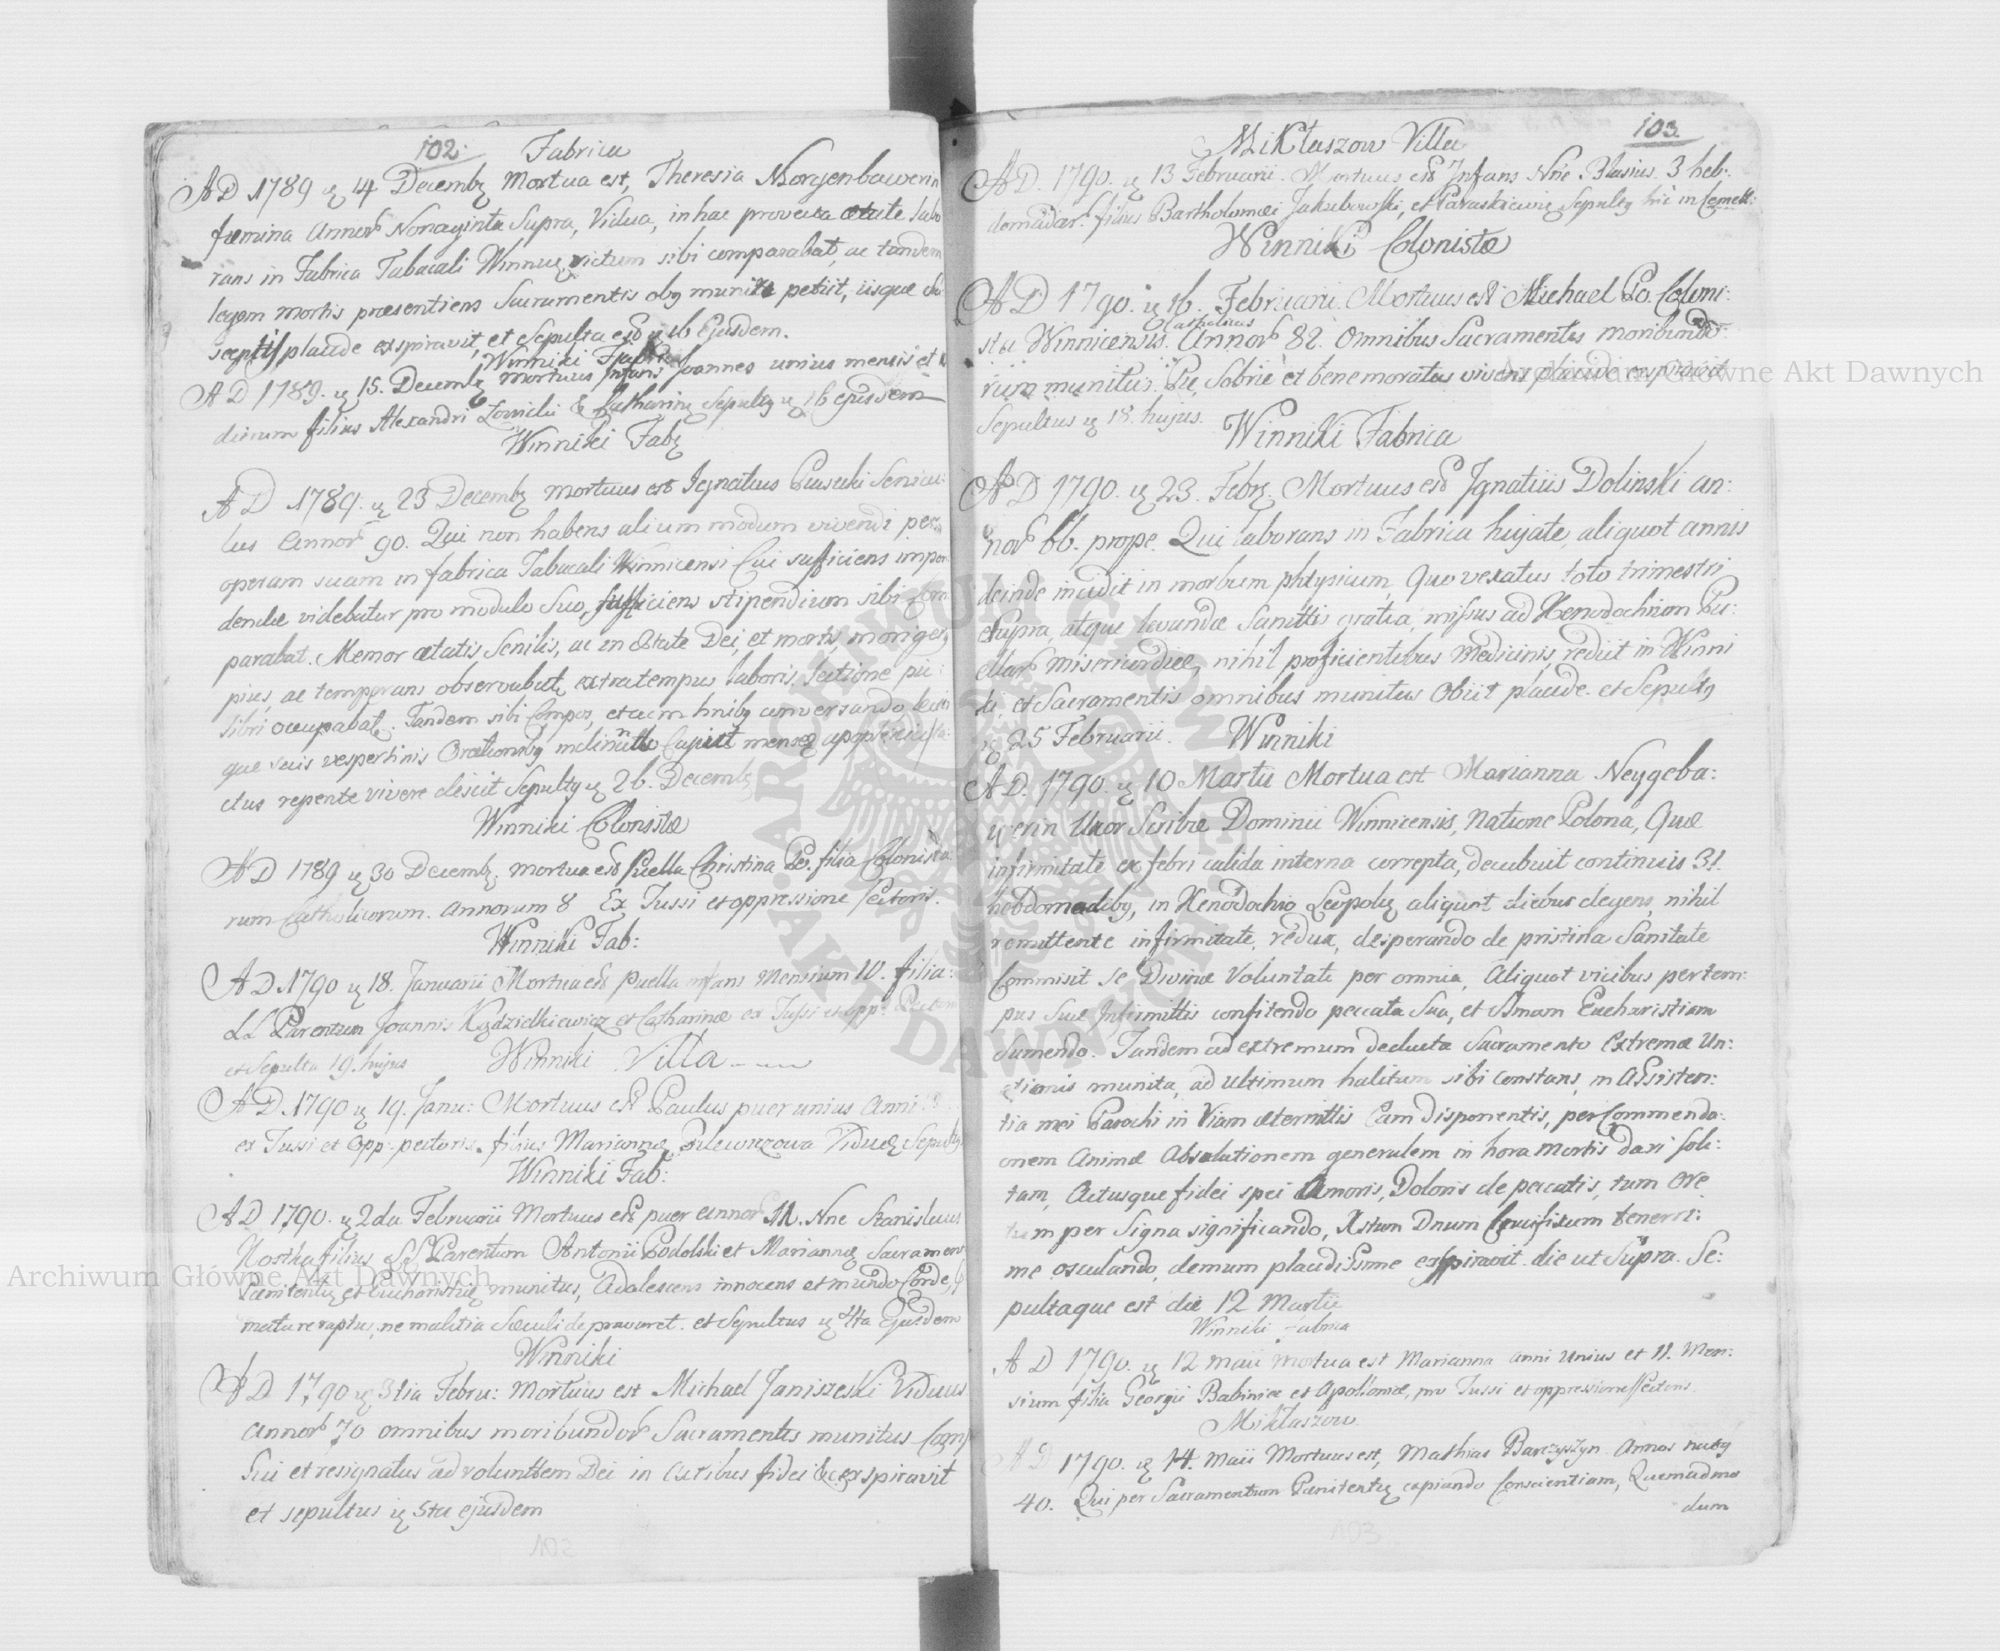 102. Fabrica
AD 1789 ę 14 Decembę Mortua est, Theresia Morgenbawerin
fæmina Annor. Nonaginta Supra, Vidua, in hac provecta ætate labo
rans in Fabrica Tabacali Winnicę victum sibi comparabat, ac tandem
legem mortis præsentiens Sacramentis obę munita petiit, iisque su
sceptis placide exspiravit, et Sepulta est ę 16 Ejusdem.
Winniki Fabri
AD 1789. ę 15. Decembę Mortuus Infans Joannes unius mensis et
dierum filius Alexandri & Catharinę Sepultę ę 16 ejusdem
Winniki Fabę
AD 1789. ę 23 Decembę mortuus est Ignatius Senicu:
lus Annor. 90. Qui non habens alium modum vivendi per
operam suam in fabrica Tabacali Winnicensi Cui sufficiens impen
dendæ videbatur pro modulo Suo, sufficiens stipendium sibi com
parabat. Memor ætatis Senilis, ac in Dei, et mortis,
pius, ac temperans observabatę extra tempus laboris, lectione pii
libri occupabatę. Tandem sibi Compos, et cum conversando
que suis vespertinis Orationibę
ctus repente vivere desiit Sepultę ę 26. Decembę
Winniki Colonistæ
AD 1789 ę 30 Decembę. mortua est Puella Christina Po. filia Colonista
rum Catholicorum. annorum 8 Ex Tussi et oppressione Pectoris.
Winniki Fab:
AD. 1790 ę 18. Januarii Mortua est Puella infans Mensium 10. filia
LL Parentum Joannis Kądzielkiewicz et Catharinæ ex Tussi et opp: Pectoris
et Sepulta 19. hujus Winniki Villa
AD. 1790 ę 19. Janu: Mortuus est Paulus puer unius Anni
ex Tussi et Opp: pectoris. filius Mariannę Viduę Sepultę
Winniki Fab:
AD 1790. ę 2da Februarii Mortuus est puer Annor. 11. Nne Stanislaus
Kostka filius LL Parentum Antonii Podolski et Mariannę Sacramen
Pænitentię et Eucharistię munitus, Adolescens innocens et mundo Corde,
mature raptus, ne malitia Sæculi depravaret. et Sepultus ę 4ta Ejusdem
Winniki
AD 1790 ę 3tia Febru: Mortuus est Michael Janiszeski Viduus
Annor. 70 omnibus moribundor. Sacramentis munitus Com
Sui et resignatus ad volunttem Dei in Actibus fidei &c. exspiravit
et sepultus ę 5ta ejusdem
102
Mikłaszow Villa 103.
AD. 1790. ę 13 Februarii. Mortuus est Infans Nne Blasius. 3 heb:
domadar. filius Bartholomæi Jakubowski, et Paraskiewię Sepultę hic in Cemett:
Winniki Colonistæ
AD 1790. ę 16. Februarii Mortuus est Michael Po. Coloni:
Catholicus
sta Winnicensis. Annor. 82. Omnibus Sacramentis moribundo:
rum munitus. Pie, Sobrie et bene moratus vivens placide expiravit
Sepultus ę 18. hujus.
Winniki Fabrica
AD 1790. ę 23. Febrę. Mortuus est Ignatius Dolinski an:
nor. 66. prope. Qui laborans in Fabrica hujate, aliquot annis
deinde incidit in morbum phtysicum, Quo vexatus toto trimestri
et supra, atque levandæ Sanittis gratia, missus ad Xenodochium Pu:
ellar. misericordiæ, nihil proficientibus Medicinis, rediit in Winni
ki, et Sacramentis omnibus munitus Obiit placide. et Sepultę
ę 25 Februarii. Winniki
AD. 1790. ę 10 Martii Mortua est Marianna Neygeba:
werin Uxor Scribæ Dominii Winnicensis, Natione Polona, Quæ
infirmitate ex febri calida interna correpta, decubuit continuis 31.
hebdomadibę, in Xenodochio Leopolę aliquot diebus degens, nihil
remittente infirmitate, redux, desperando de pristina Sanitate
Commisit se Divinæ Voluntati per omnia, Aliquot vicibus per tem:
pus Suæ Infirmittis confitendo peccata Sua, et Smam Eucharistiam
Sumendo. Tandem ad extremum deducta Sacramento Extremæ Un:
ctionis munita, ad Ultimum halitum sibi constans, in Assisten:
tia mei Parochi in Viam æternittis Eam disponentis, per Commenda:
onem Animæ Absolutionem generalem in hora Mortis dari soli:
tam, Actusque fidei spei Amoris, Doloris de peccatis, tum Ore
tum per Signa significando, Xstum Dnum Crucifixum tenerri:
me osculando, demum placidissime exspiravit. die ut Supra. Se:
pultaque est die 12 Martii
Winniki Fabrica
AD 1790. ę 12 Maii Mortua est Marianna anni Unius et 11. Men:
sium filia Georgii Babinicz et Apolloniæ, ex Tussi et oppressione Pectoris
Mikłaszow
AD 1790. ę 14. Maii Mortuus est, Mathias Barczyszyn Annos natę
40. Qui per Sacramentum Pænitentię expiando Conscientiam, Quemadmo
dum
103
Archiwum Główne Akt Dawnych
Archiwum Główne Akt Dawnych
ARCHIWUM GŁÓWNE AKT DAWNYCH